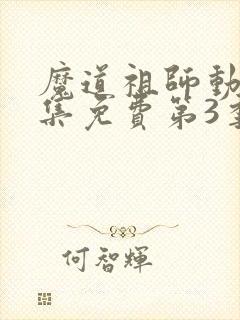 魔道祖師動
集免費第3季
何智輝